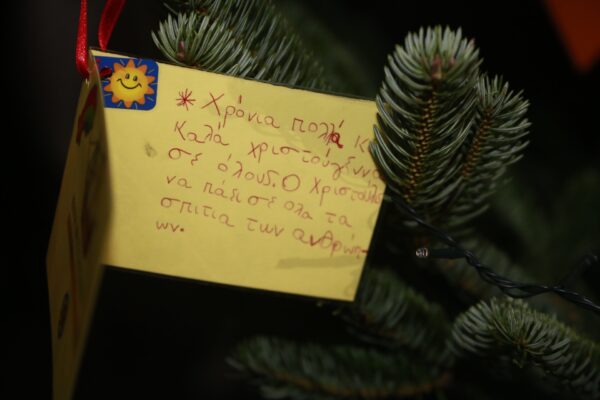 * Χρόνια πολλά κ
καλά χριστούγενν
σέ όλουδ. Ο Χριστούλη
να πάει σε όλα τα
σπιτια των ανθρώπ-
ων.